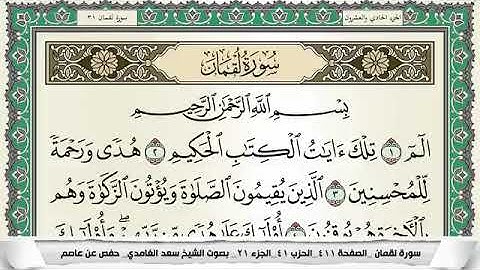 سورة لقمان ٣١
الجزء الحادي والعشرون
سُورَةُ لُقْمَانَ
بِسْمِ اللَّهِ الرَّحْمَٰنِ الرَّحِيمِ
الٓمٓ ١ تِلْكَ ءَايَٰتُ ٱلْكِتَٰبِ ٱلْحَكِيمِ ٢ هُدًى وَرَحْمَةً
لِّلْمُحْسِنِينَ ٣ ٱلَّذِينَ يُقِيمُونَ ٱلصَّلَوٰةَ وَيُؤْتُونَ ٱلزَّكَوٰةَ وَهُم
بِٱلْءَاخِرَةِ هُمْ يُوقِنُونَ ٤ أُو۟لَٰٓئِكَ عَلَىٰ هُدًى مِّن رَّبِّهِمْ ۖ وَأُو۟لَٰٓئِكَ
سورة لقمان _ الصفحة ٤١١ _ الحزب ٤١ _ الجزء ٢١ _ بصوت الشيخ سعد الغامدي _ حفص عن عاصم